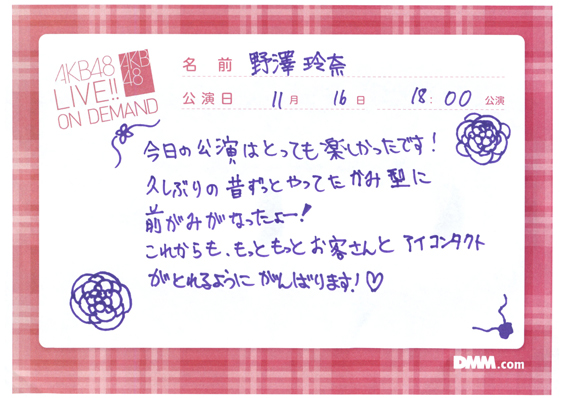 AKB48
LIVE!!
ON DEMAND
AKB
48
名前 野澤 玲奈
公演日 11月 16日 18:00 公演
今日の公演はとっても楽しかったです!
久しぶりの昔ずっとやってたかみ型に
前がみがなったよー!
これからも、もっともっとお客さんとアイコンタクト
がとれるようにがんばります!♡
DMM.com